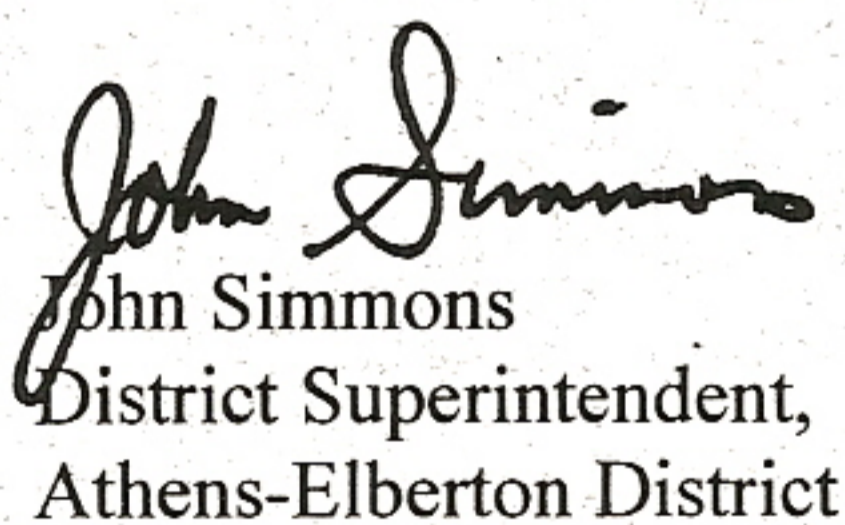 John Simmons
John Simmons
District Superintendent,
Athens-Elberton District